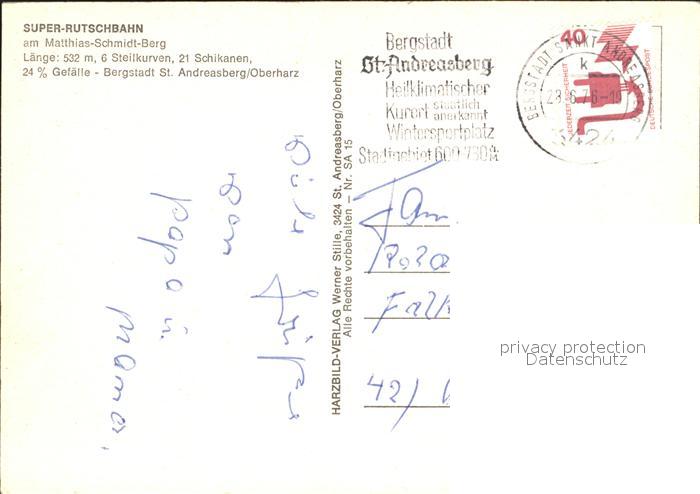 SUPER-RUTSCHBAHN
am Matthias-Schmidt-Berg
Länge: 532 m, 6 Steilkurven, 21 Schikanen,
24 % Gefälle - Bergstadt St. Andreasberg/Oberharz
Bergstadt
St. Andreasberg
Heilklimatischer
Kurort staatlich anerkannt
Wintersportplatz
Stadtgebiet 600-730
BERGSTADT SANKT ANDREASBERG
k
28.6.76-10
3424
40
JEDERZEIT SICHERHEIT
DEUTSCHE BUNDESPOST
HARZBILD-VERLAG Werner Stille, 3424 St. Andreasberg/Oberharz
Alle Rechte vorbehalten — Nr. SA 15
von
Papa
u.
Mama.
Fam.
42/
privacy protection
Datenschutz